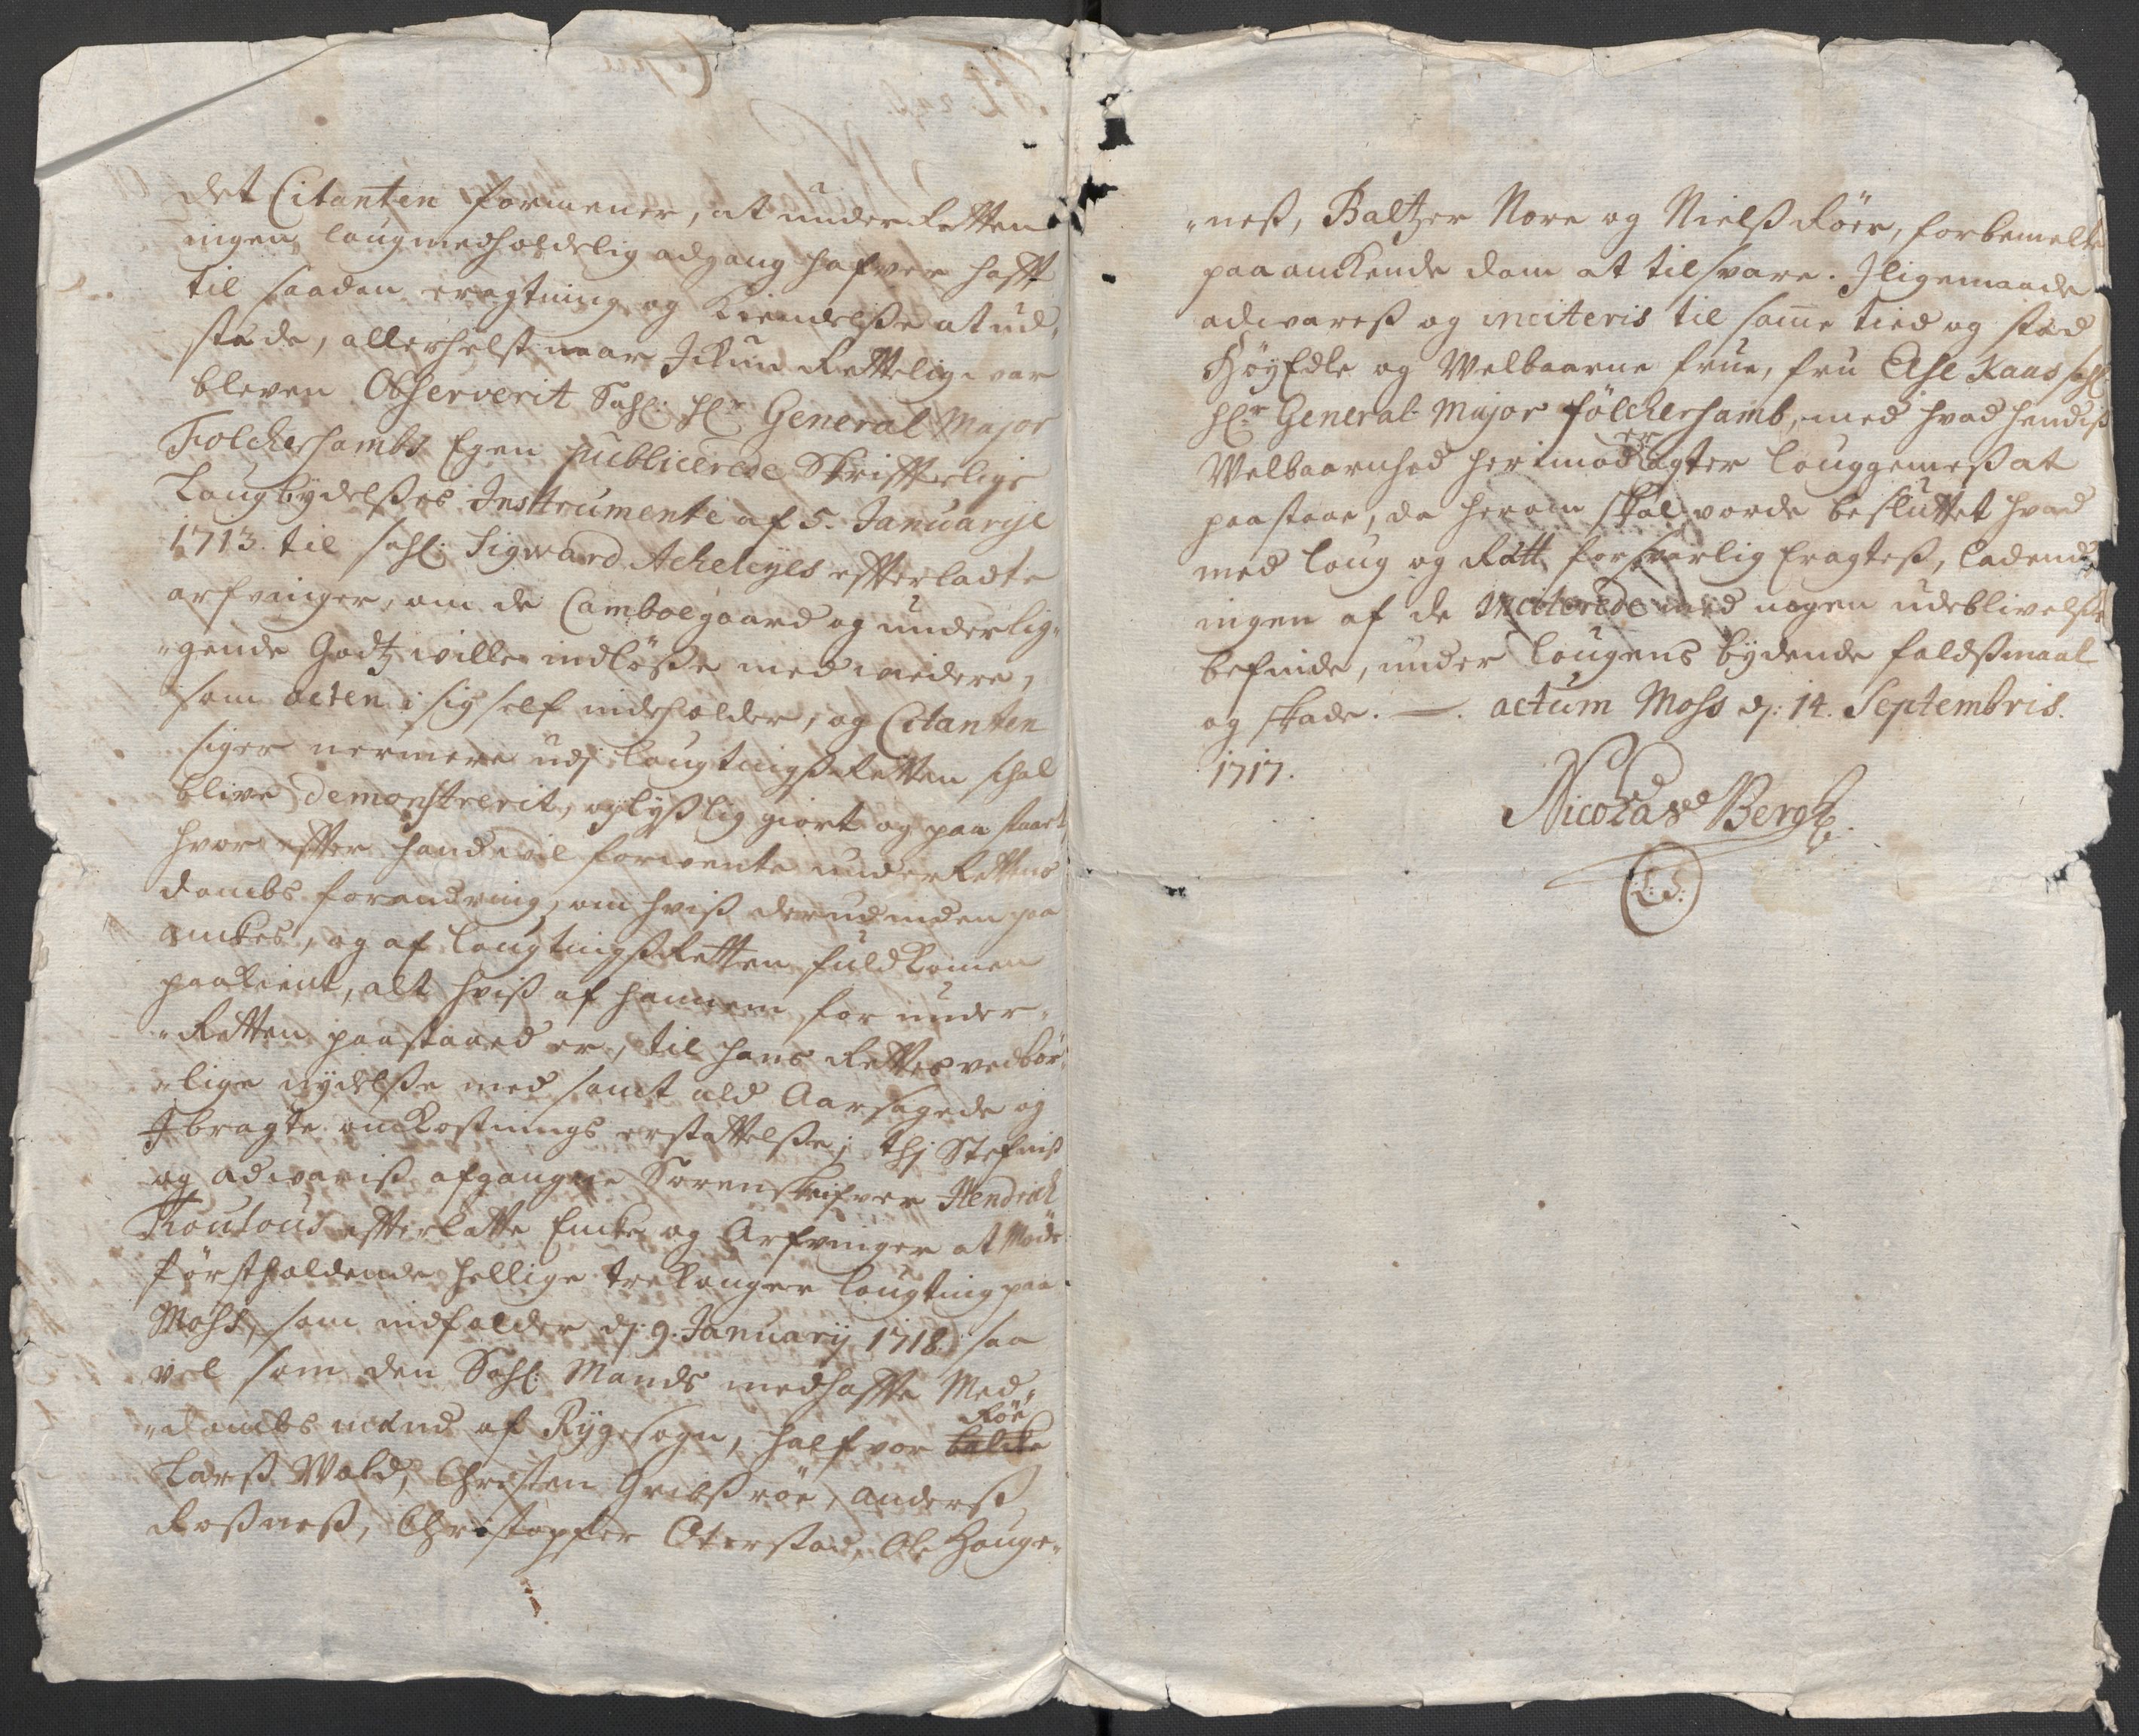 det Citanten formener, at under Retten
ingen laugmedholdelig adgang hafver hafft
til saadan eragtning og Kiendelsse at ud„
stede, allerhelst naar Ickun Rettelig var
bleven Observerit Sahl: Hr General Major
Folckershambs Egen publicerede Skrifftelige
Laugbydelsses Insttrumente af 5. Januarije
1713. til Sahl: Sigward Acheleyes efterladte
arfvinger, om de Camboegaard og underlig„
„gende Godtz wille indlösse med widere,
som acten i sig self indeholder, og Citanten
siger nermere udj laugtingssRetten skal
blive demonstrerit, oplysslig giort og paastaaet
hvor effter hand wil forvente underRettens
dombs forandring, om hviss derudinden paa
anckes, og af laugtingssRetten fuldkomen
paakient, alt hviss af hannem for under„
„Retten paastaaed er, til hans Rettes vedbör„
„lige nydelsse med samt ald Aarsagede og
Ibragte omkostnings erstattelsse; thj Stefniss
og advariss afgangne Sorenskrifver Hendrich
Koulous effterlatte Encke og Arfvinger at Möde
förstholdende hellige tre konger laugting paa
Moss, som indfalder dj: 9. Januarij 1718. saa
vel som den Sahl: Mands medhaffte Med„
„dombs mænd af Rygesogn, Halfvor Röe
Larss Wold, Christen Gribssröe, Anderss
Rossness, Christopffer Oterstad, Ole Hauge„
„ness, Baltzer Nore og Nielss Röer, forbemelte
paaanckende dom at tilsvare. Iligemaade
advaress og inciteris til samme tied og sted
HöyEdle og Welbaarne frue, fru Else Kaas Sahl:
Hr General-Major Fölckersamb, med hvad hendiss
Welbaarnhed herimod eragter lauggemess at
paastaae, da herom skal vorde besluttet hvad
med laug og Rett forsvarlig Eragtess, ladende
ingen af de Inciterede med nogen udeblivelsse
befinde, under laugens bydende faldssmaal
og skade. —. actum Moss dj: 14. Septembris.
1717.
Nicolas Bergh
L:S: